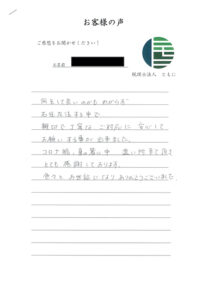 お客様の声
ご感想をお聞かせください！
お名前
税理士法人 ともに
何をして良いのかもわからず
右往左往する中で
親切で丁寧なご対応に安心して
お願いする事が出来ました。
コロナ禍、夏の暑い中
とても感謝しております。
色々とお世話になりありがとうございました